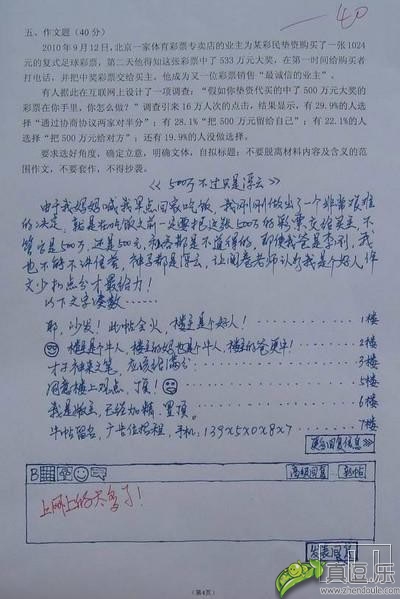 -40
五、作文题(40分)
2010年9月12日,北京一家体育彩票专卖店的业主为某彩民垫资购买了一张1024
元的复式足球彩票,第二天他得知这张彩票中了533万元大奖,在第一时间给购买者
打电话,并把中奖彩票交给买主,他成为又一位彩票销售“最诚信的业主”。
有人据此在互联网上设计了一项调查:“假如你垫资代买的中了500万元大奖的
彩票在你手里,你怎么做?”调查引来16万人次的点击,结果显示,有29.9%的人选
择“通过协商协议两家对半分”;有28.1%“把500万元留给自己”;有22.1%的人
选择“把500万元给对方”;还有19.9%的人没做选择。
要求选好角度,确定立意,明确文体,自拟标题;不要脱离材料内容及含义的范
围作文,不要套作,不得抄袭。
《500万不过只是浮云》
由于我妈妈喊我早点回家吃饭,我刚刚做出了一个非常艰难
的决定,就是在吃饭之前一定要把这张500万的彩票交给买主,不
管它是500万,还是500元,都是不值得的,即使我爸是李刚,我
也不能不讲信誉,神马都是浮云,让阅卷老师认为我是个好人,作
文少扣点分才最给力!
以下文字凑数……
耶,沙发!此帖会火,楼主是个好人! 1楼
楼主是个牛人,楼主的妈也是个牛人,楼主的爸更牛! 2楼
才子神来之笔,应该给满分 3楼
同意楼上观点,顶! 5楼
我是版主,已经加精,置顶。 6楼
牛帖留名,广告位招租,手机:139X5X0X8X7 7楼
更多回复信息>>
B
高级回复
上网上的太多了!
发表回复
(第4页)
真逗乐
www.zhendoule.com